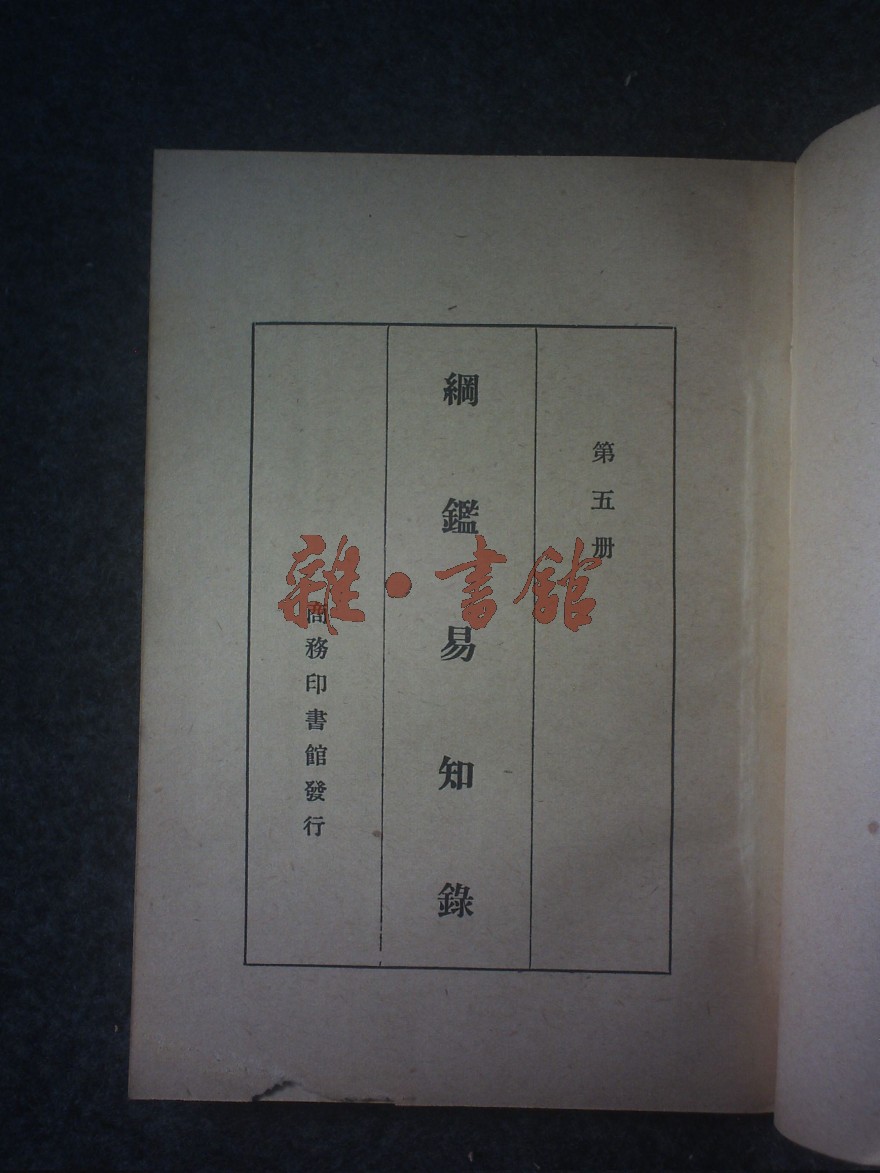 第五册
綱鑑易知錄
商務印書館發行
雜·書館